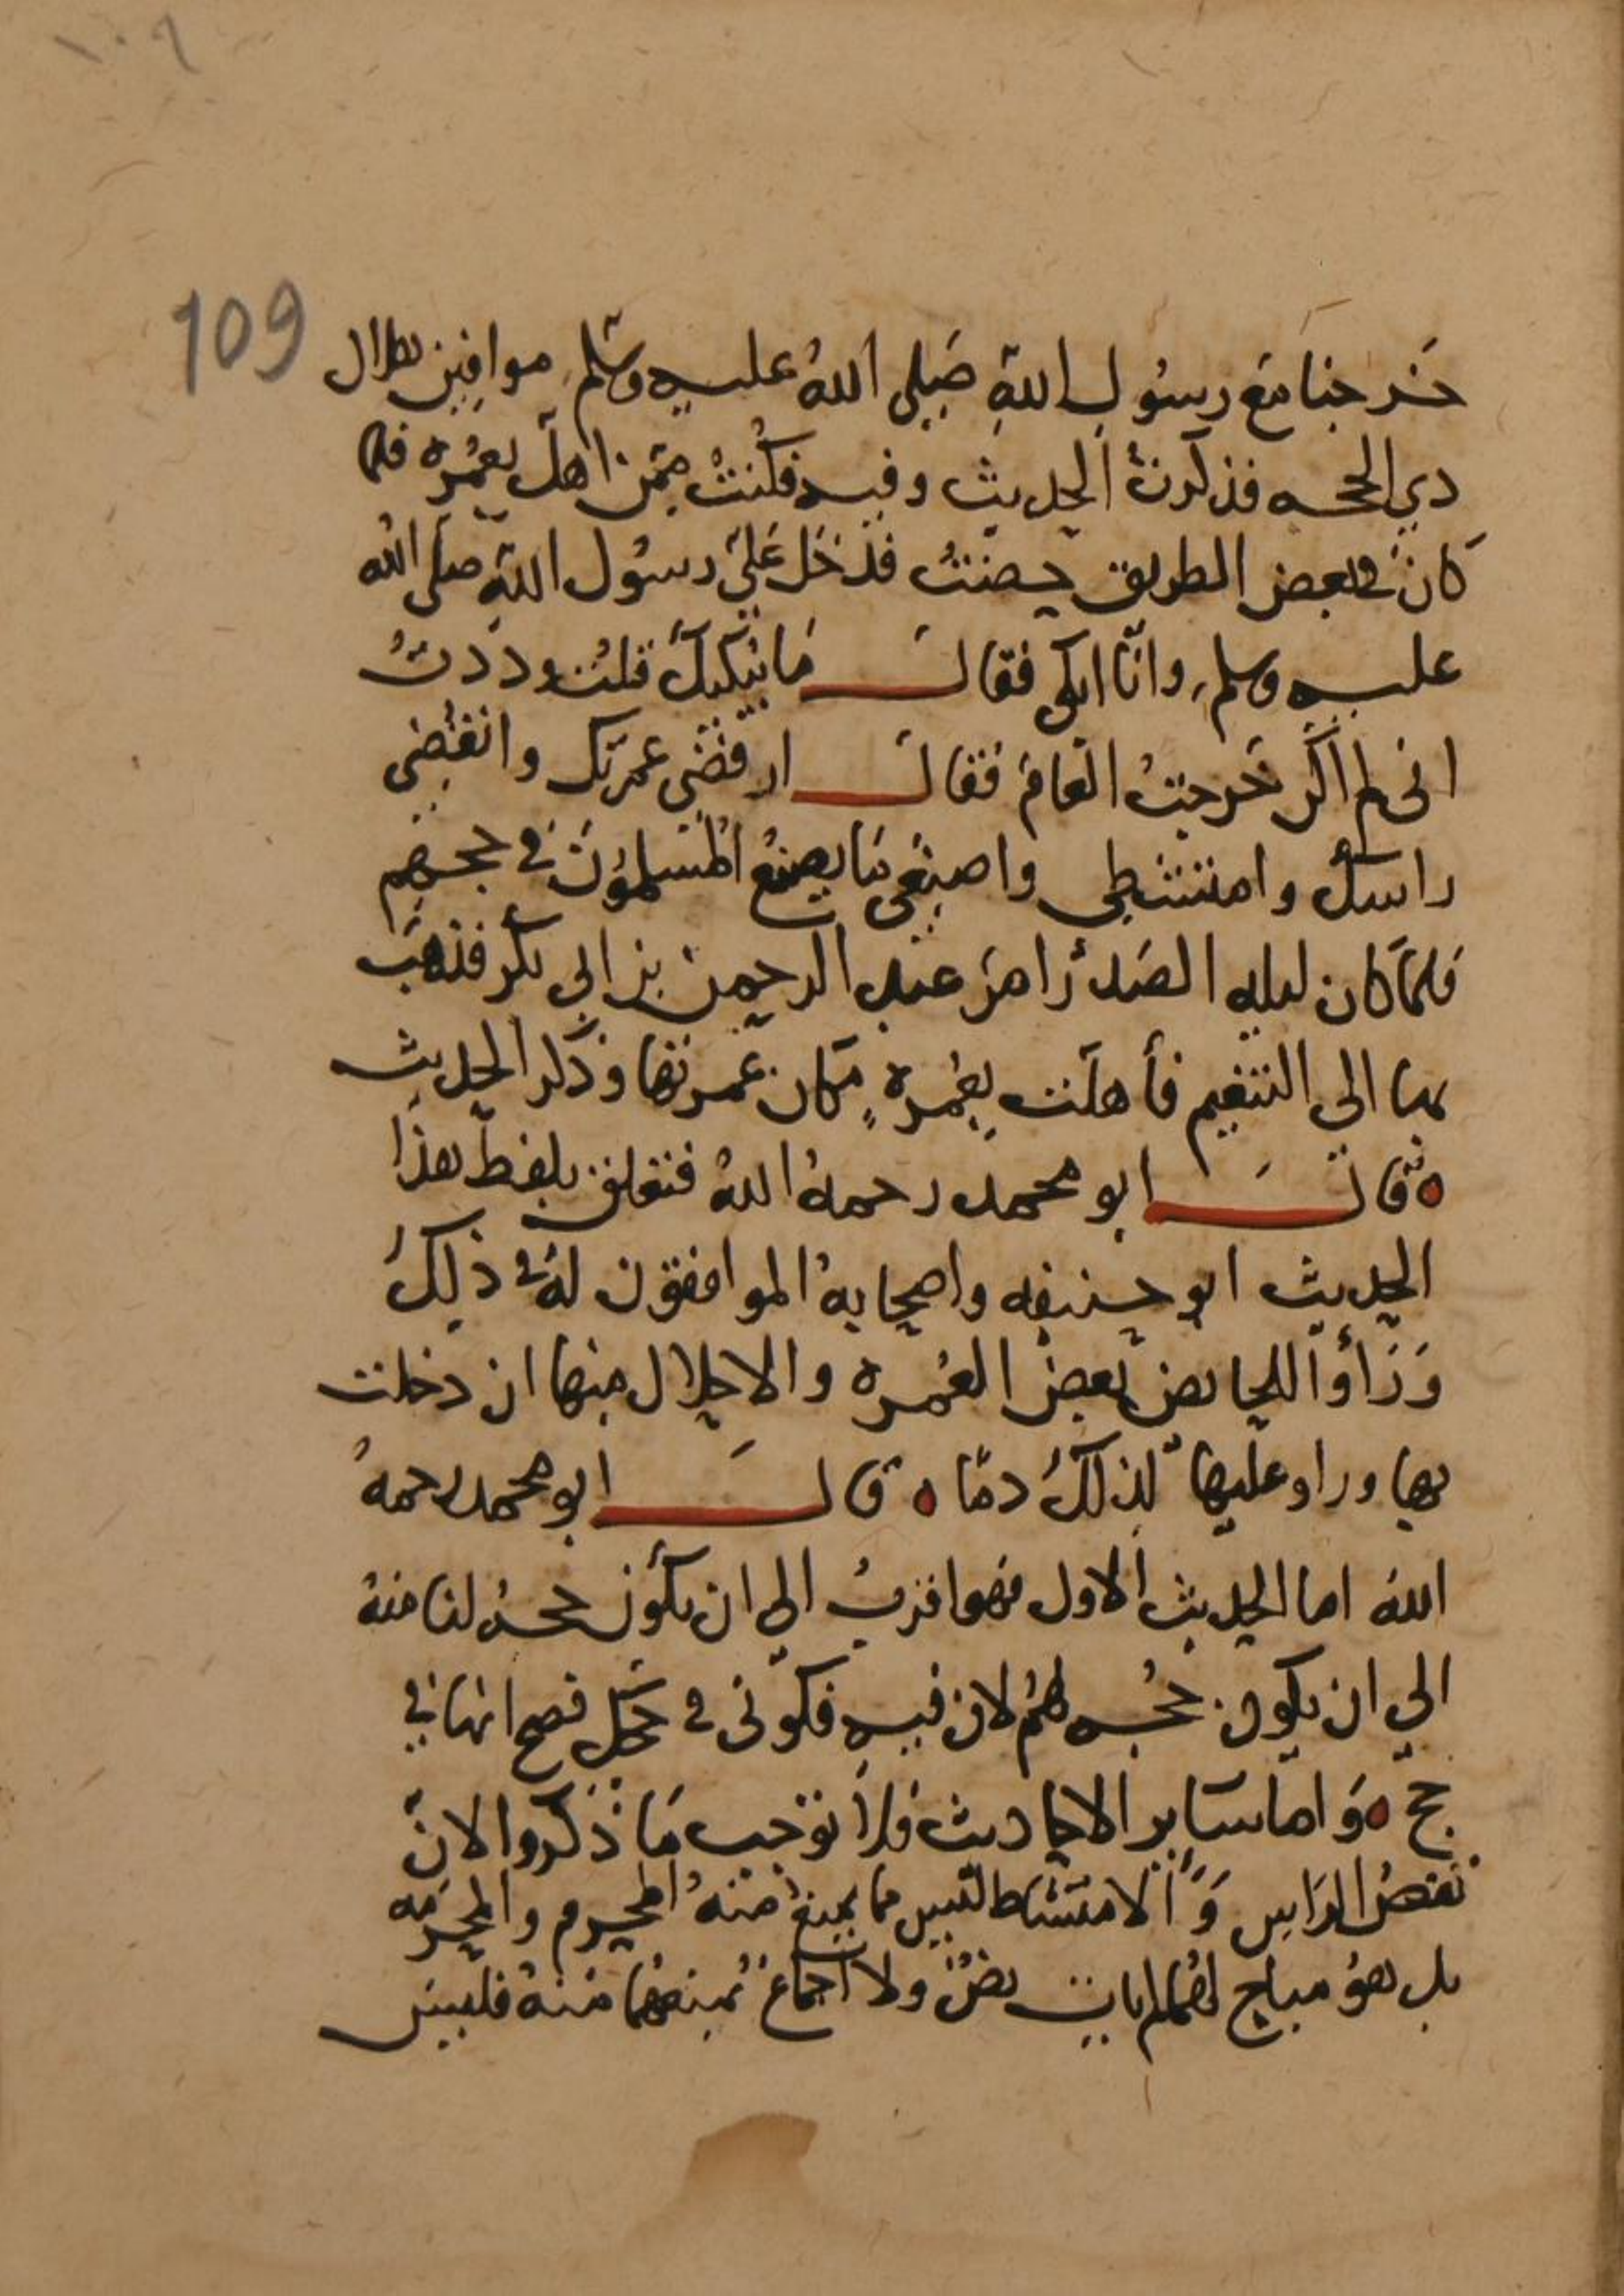 ١٠٩
109
خرجنا مع رسول الله صلى الله عليه وسلم موافين هلال
ذي الحجه فذكرت الحديث وفيه فكنت ممن اهل بعمره فلما
كان في بعض الطريق حضت فدخل علي رسول الله صلى الله
عليه وسلم وانا ابكي فقال ما يبكيك قلت وددت
اني لم اكن خرجت العام فقال ارفضي عمرتك وانقضي
راسك وامتشطي واصنعي ما يصنع المسلمون في حجهم
فلما كان ليله الصدر امر عبد الرحمن بن ابي بكر فذهب
بها الى التنعيم فأهلت بعمرة مكان عمرتها وذكر الحديث
ه قال ابو محمد رحمه الله فتعلق بلفظ هذا
الحديث ابو حنيفه واصحابه الموافقون له في ذلك
ورأوا للحايض بعض العمره والاحلال منها ان دخلت
بها وراو عليها لذلك دما ه قال ابو محمد رحمه
الله اما الحديث الاول فهو اقرب الى ان يكون حجه لنا منه
الي ان يكون حجه لهم لان فيه فكوني في حجك فصح انها في
حج ه واما ساير الاحاديث فلا توجب ما ذكروا لان
نقض الراس و الامتشاط ليس مما يمنع منه المحرم والمحرمه
بل هو مباح لهما لم يات نص ولا اجماع بمنعهما منه فليس